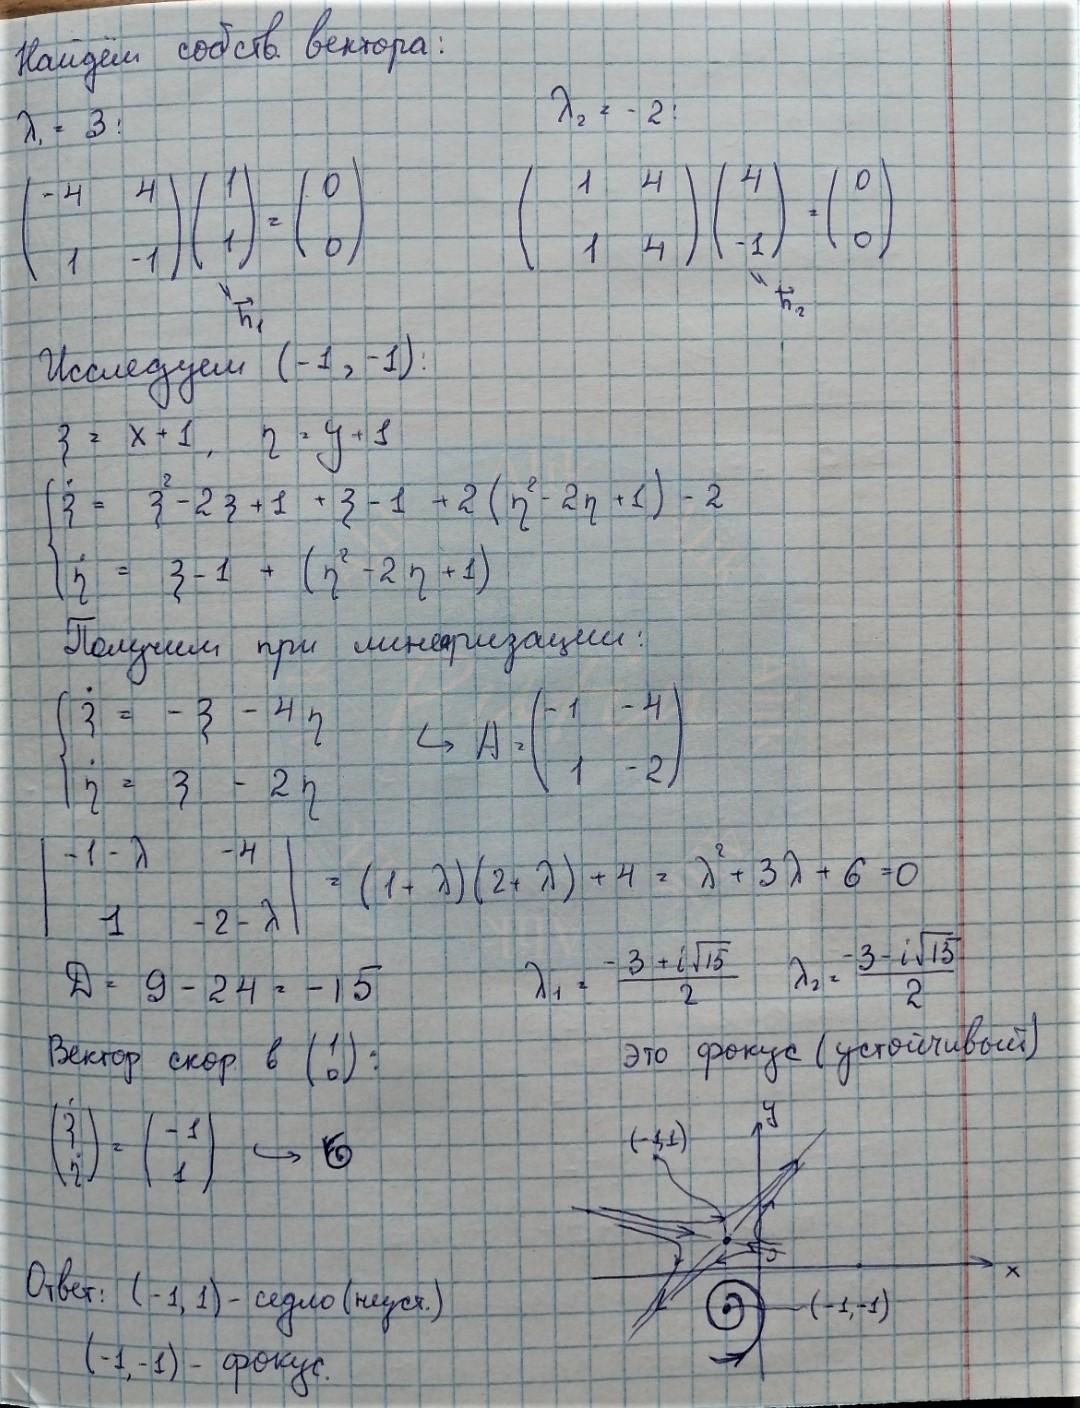 Найдём собств. вектора:
λ₁ = 3: λ₂ = -2:
(-4 4; 1 -1) (1; 1) = (0; 0) (1 4; 1 4) (4; -1) = (0; 0)
h⃗₁ h⃗₂
Исследуем (-1, -1):
ξ = x + 1, η = y + 1
ξ̇ = ξ² - 2ξ + 1 + ξ - 1 + 2(η² - 2η + 1) - 2
η̇ = ξ - 1 + (η² - 2η + 1)
Получим при линеаризации:
ξ̇ = -ξ - 4η ↪ A = (-1 -4; 1 -2)
η̇ = ξ - 2η
|-1-λ -4; 1 -2-λ| = (1+λ)(2+λ) + 4 = λ² + 3λ + 6 = 0
D = 9 - 24 = -15 λ₁ = (-3 + i√15)/2 λ₂ = (-3 - i√15)/2
Вектор скор в (1; 0): это фокус (устойчивый)
(ξ̇; η̇) = (-1; 1) ↪
y
(-1,1)
x
(-1,-1)
Ответ: (-1, 1) - седло (неуст.)
(-1, -1) - фокус.